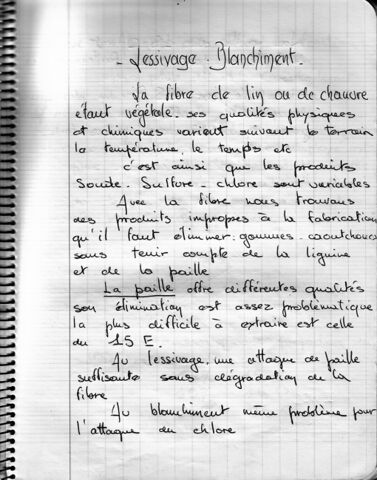 - Lessivage. Blanchiment.
La fibre de lin ou de chanvre
étant végétale. ses qualités physiques
et chimiques varient suivant le terrain
la température. le temps etc
c'est ainsi que les produits
Soude. Sulfure - chlore sont variables
Avec la fibre nous trouvons
des produits impropres à la fabrication
qu'il faut éliminer: gommes. caoutchouc
sans tenir compte de la lignine
et de la paille
La paille offre différentes qualités
son élimination est assez problématique
la plus difficile à extraire est celle
du 15 E.
Au lessivage. une attaque de paille
suffisante sans dégradation de la
fibre
Au blanchiment même problème pour
l'attaque au chlore